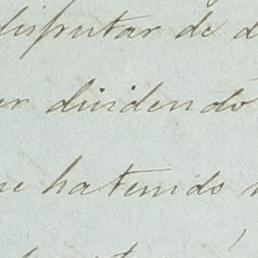 disfrutar de
dividendo
ha tenido